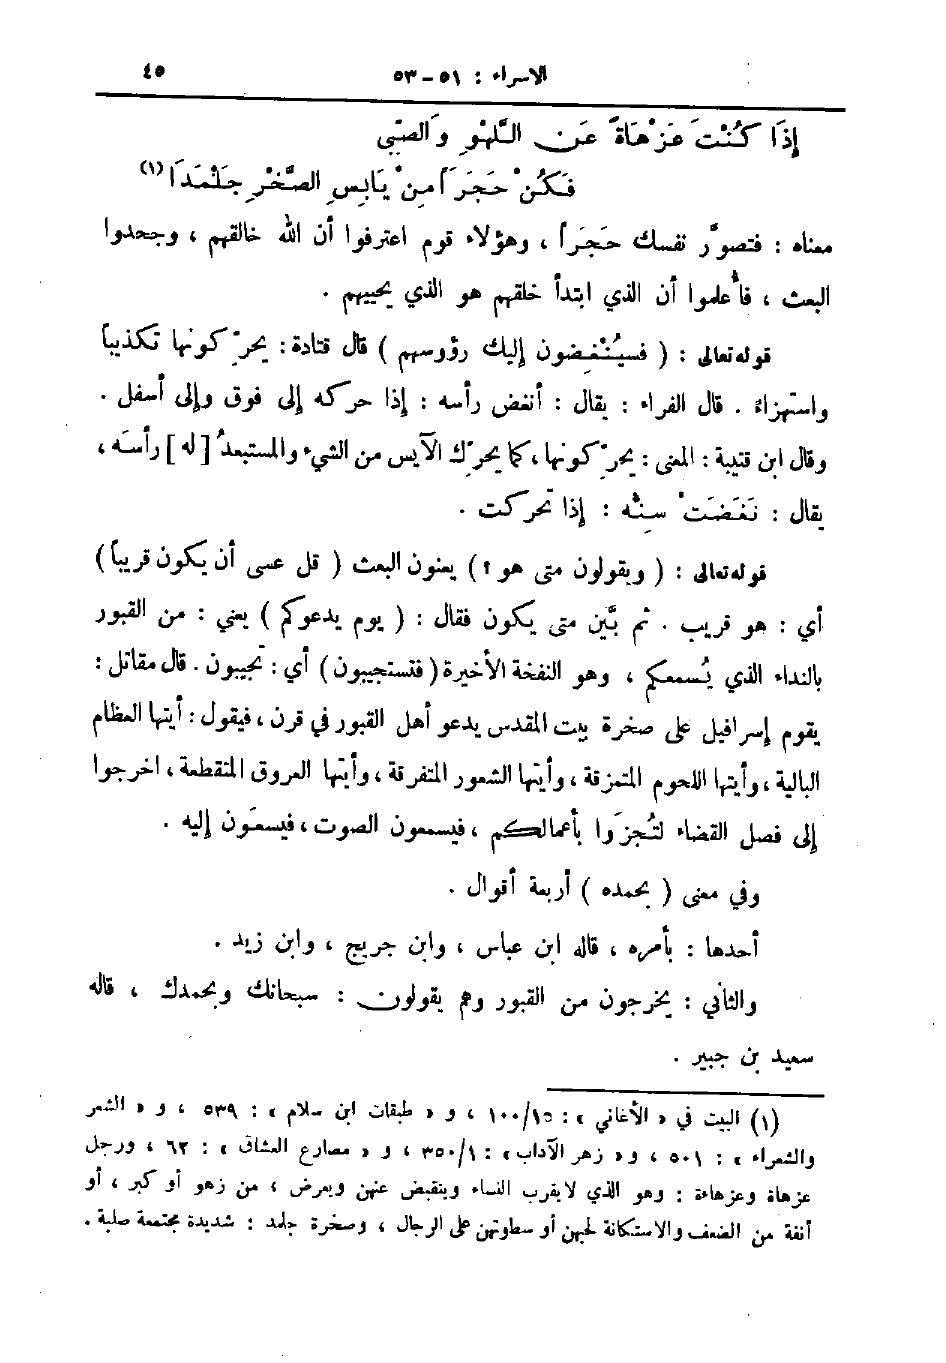 الاسراء : ٥١ - ٥٣ ٤٥
إِذَا كُنْتَ عَزْهَاةً عَنِ اللَّهْوِ وَالصِّبى
فَكُنْ حَجَرَاً مِنْ يَابِسِ الصَّخْرِ جَلْمَدَا (١)
معناه : فتصوَّر نفسك حَجَراً ، وهؤلاء قوم اعترفوا أن الله خالقهم ، وجحدوا
البعث ، فأُعلموا أن الذي ابتدأ خلقهم هو الذي يحييهم .
قوله تعالى : ( فسيُنْغِضون إِليك رؤوسهم ) قال قتادة : يحرِّكونها تكذيباً
واستهزاءً . قال الفراء : يقال : أنغض رأسه : إِذا حركه إِلى فوق وإِلى أسفل .
وقال ابن قتيبة : المعنى : يحرِّكونها ، كما يحرِّك الآيس من الشيء والمستبعدُ [ له ] رأسَه ،
يقال : نَغَضَتْ سِنُّه : إِذا تحركت .
قوله تعالى : ( ويقولون متى هو ؟ ) يعنون البعث ( قل عسى أن يكون قريباً )
أي : هو قريب . ثم بيَّن متى يكون فقال : ( يوم يدعوكم ) يعني : من القبور
بالنداء الذي يُسمعكم ، وهو النفخة الأخيرة ( فتستجيبون ) أي : تجيبون . قال مقاتل :
يقوم إِسرافيل على صخرة بيت المقدس يدعو أهل القبور في قرن ، فيقول : أيتها العظام
البالية ، وأيتها اللحوم المتمزقة ، وأيتها الشعور المتفرقة ، وأيتها العروق المتقطعة ، اخرجوا
إِلى فصل القضاء لتُجزَوا بأعمالكم ، فيسمعون الصوت ، فيسعَون إِليه .
وفي معنى ( بحمده ) أربعة أقوال .
أحدها : بأمره ، قاله ابن عباس ، وابن جريج ، وابن زيد .
والثاني : يخرجون من القبور وهم يقولون : سبحانك وبحمدك ، قاله
سعيد بن جبير .
(١) البيت في « الأغاني » : ١٠٠/١٥ ، و « طبقات ابن سلام » : ٥٣٩ ، و « الشعر
والشعراء » : ٥٠١ ، و « زهر الآداب » : ٣٥٠/١ ، و « مصارع العشاق » : ٦٢ ، ورجل
عزهاة وعزهاءة : وهو الذي لا يقرب النساء وينقبض عنهن ويعرض ، من زهو أو كبر ، أو
أنفة من الضعف والاستكانة لحبهن أو سطوتهن على الرجال ، وصخرة جلمد : شديدة مجتمعة صلبة .